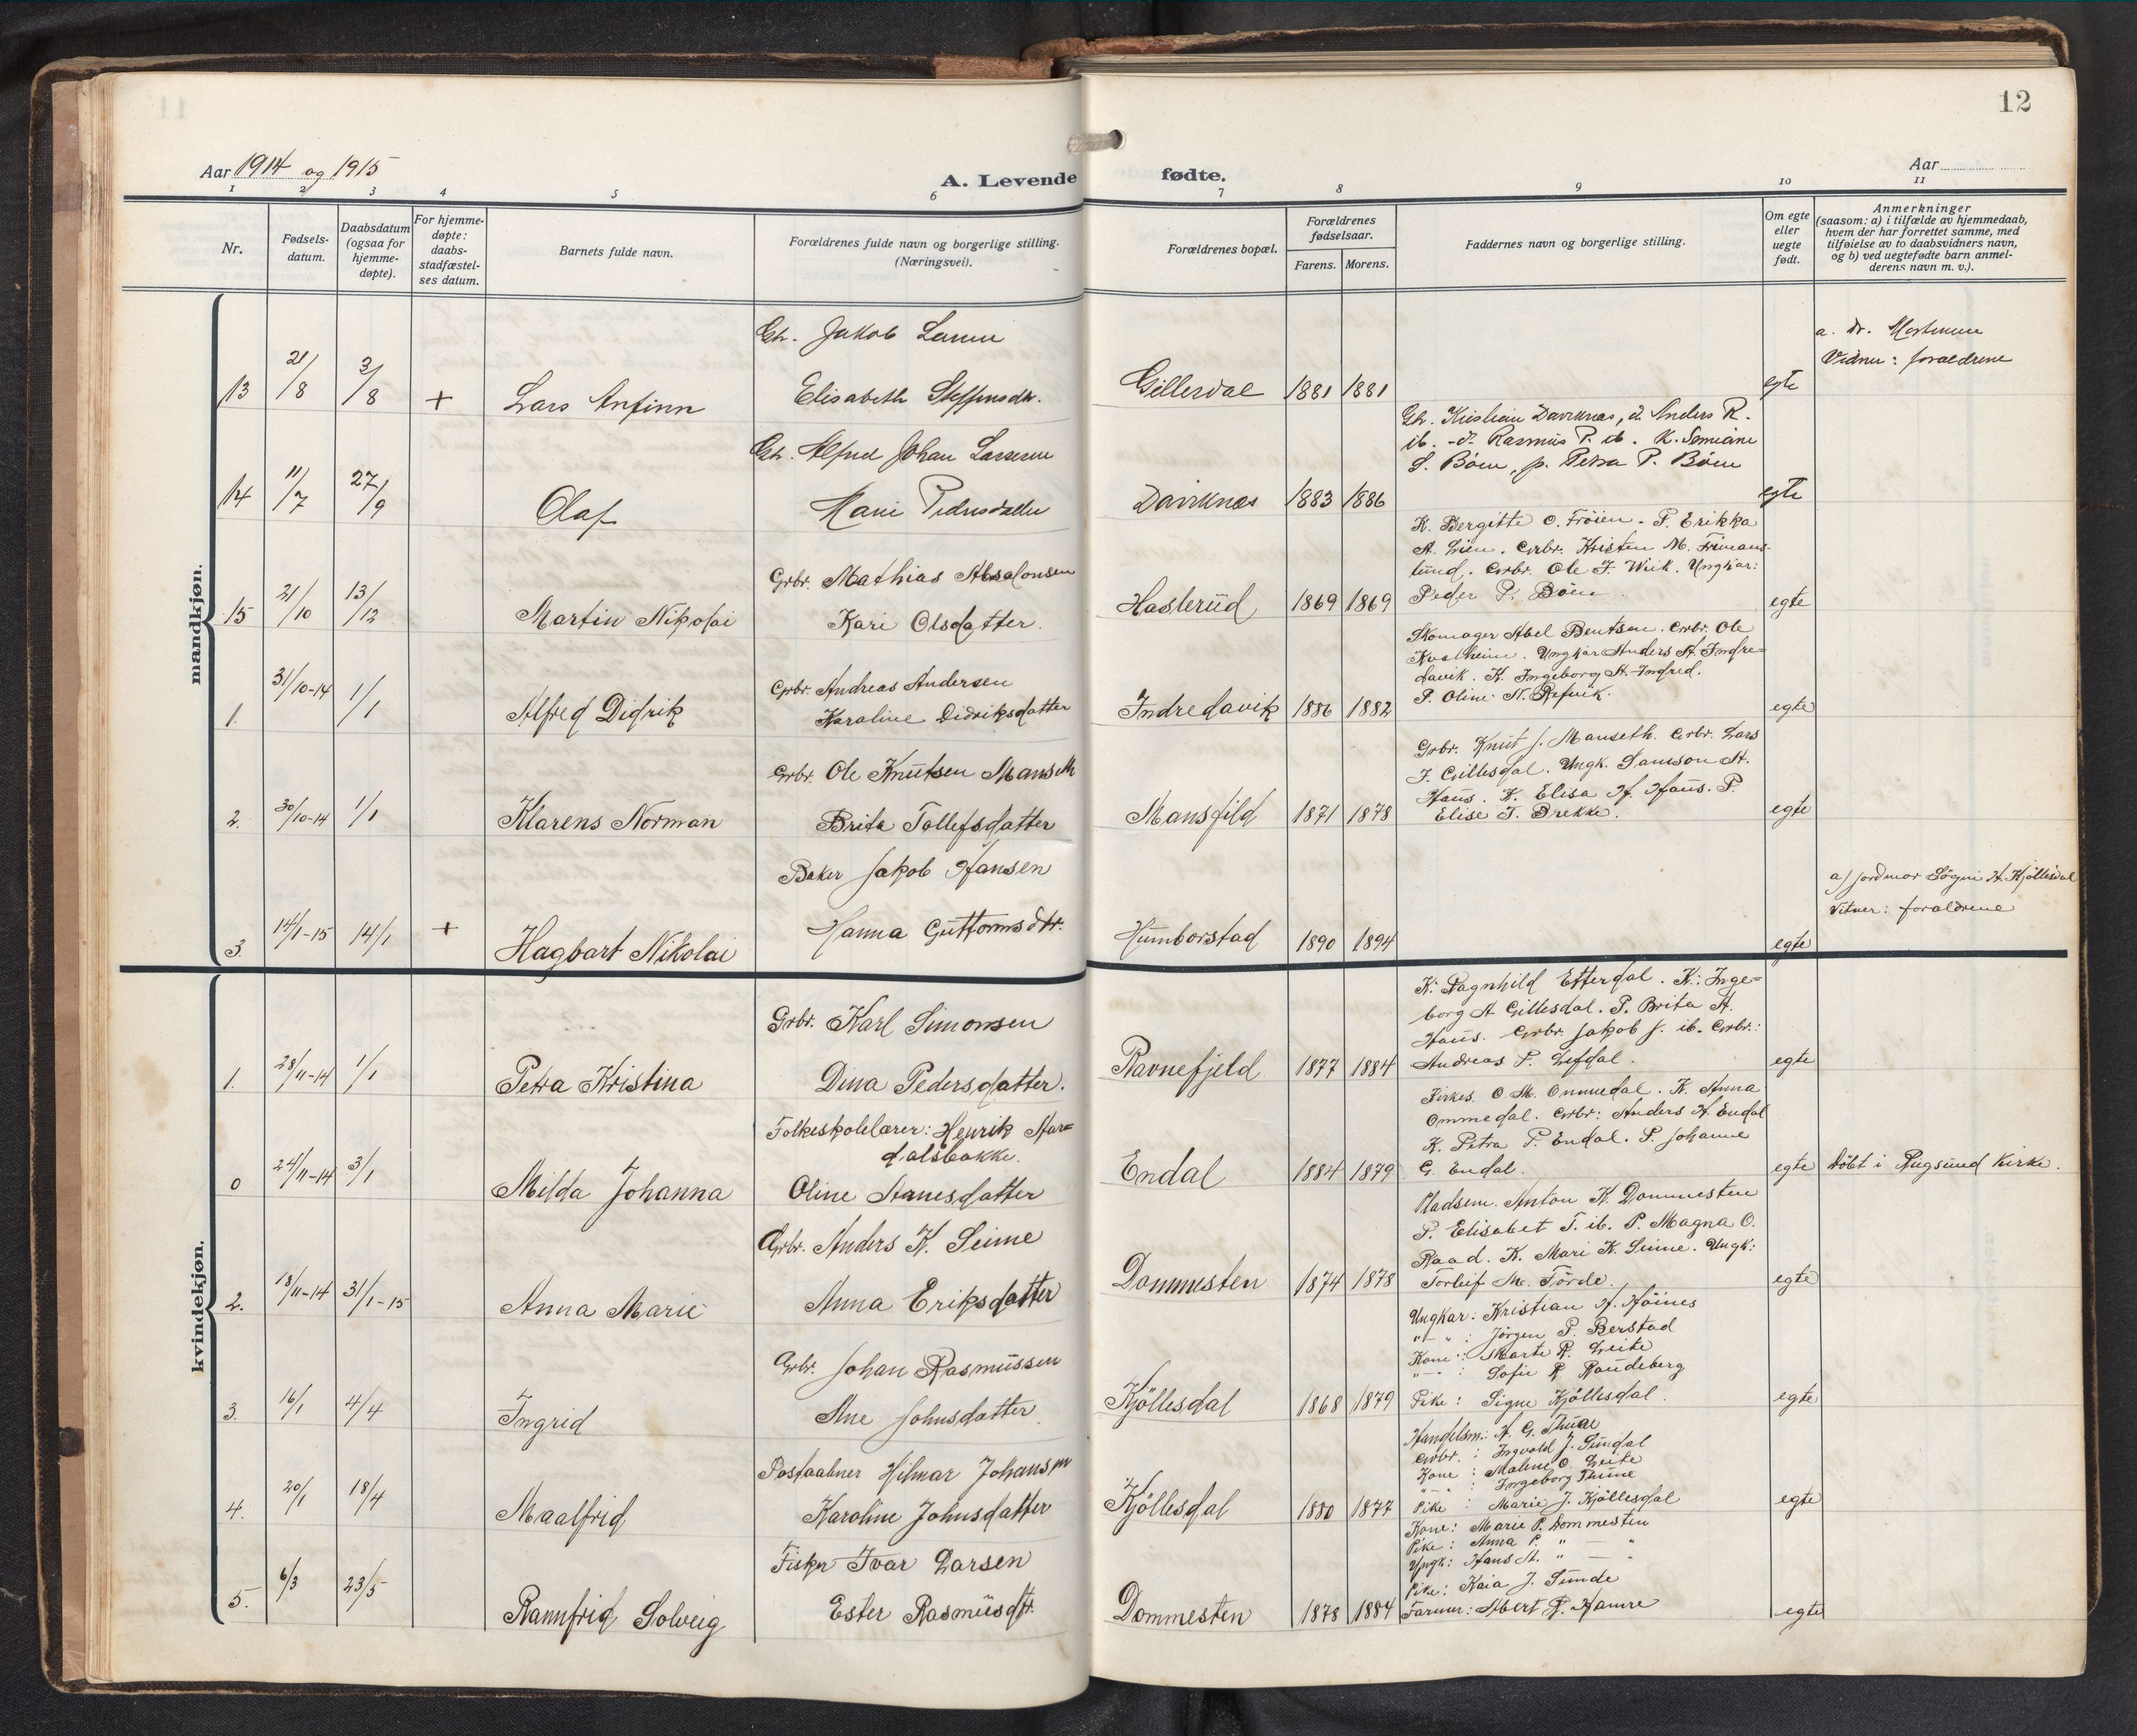 12
Aar 1914 og 1915
A. Levende fødte.
Aar
1 2 3 4 5 6 7 8 9 10 11
Nr.
Fødsels-
datum.
Daabsdatum
(ogsaa for
hjemme-
døpte).
For hjemme-
døpte:
daabs-
stadfæstel-
ses datum.
Barnets fulde navn.
Forældrenes fulde navn og borgerlige stilling.
(Næringsvei).
Forældrenes bopæl.
Forældrenes
fødselsaar.
Farens. Morens.
Faddernes navn og borgerlige stilling.
Om egte
eller
uegte
født.
Anmerkninger
(saasom: a) i tilfælde av hjemmedaab,
hvem der har forrettet samme, med
tilføielse av to daabsvidners navn,
og b) ved uegtefødte barn anmel-
derens navn m. v.).
mandkjøn.
Jakob
13 21/8 3/8 + Lars Anfinn
Elisabeth Steffensdtr.
Gillesdal 1881 1881
egte
forældrene
Alfred Johan Larsen
14 11/7 27/9 Olaf
Davknæs 1883 1886
Kristian Davknæs, Anders R.
ib. Rasmus P. ib. K.
S. Böen, p. Petra P. Böen
egte
Grbr. Mathias Absalonsen
15 21/10 13/12 Martin Nikolai
Kari Olsdatter.
Haslerud 1869 1869
K. Bergitte O. Fröien. P. Erikka
A. Lien. Grbr. Kristen M. Frimans-
lund. Grbr. Ole J. Wiik. Ungkar:
Peder P. Böen.
egte
Grbr. Andreas Andersen
1. 31/10-14 1/1 Alfred Didrik
Karoline Didriksdatter
Indredavik 1886 1882
Skomager Abel Bentsen. Grbr. Ole
Kvalheim. Ungkar Anders A. Indre=
davik. K. Ingeborg A. Indred.
P. Oline N. Refvik.
egte
Grbr. Ole Knutsen Manseth
2. 30/10-14 1/1 Klarens Norman
Brita Tollefsdatter
Mansfild 1871 1878
Grbr. Knut J. Manseth. Grbr. Lars
J. Gillesdal. Ungk. Samson A.
Haus. K. Elisa H. Haus. P.
Elise T. Drekke.
egte
Baker Jakob Hansen
3. 14/1-15 14/1 + Hagbart Nikolai
Hanna Guttormsdtr.
Humborstad 1890 1894
egte
a) Jordmor Sögni H. Kjöllesdal
Vitner: forældrene
kvindekjøn.
Grbr. Karl Simonsen
1. 28/11-14 1/1 Petra Kristina
Dina Pedersdatter.
Ravnefjeld 1877 1884
K. Ragnhild Etterdal. K: Inge=
borg A. Gillesdal. P. Brita A.
Haus. Grbr. Jakob J. ib. Grbr.:
Andreas P. Lefdal.
egte
Folkeskolelærer: Henrik Har=
dalsbakke.
0 24/11-14 3/1 Milda Johanna
Oline Hanesdatter
Endal 1884 1879
Kirkes. O. M. Ommedal. K. Anna
Ommedal. Grbr: Anders H. Endal
K. Petra P. Endal. P. Johanne
G. Endal.
egte
Döbt i Rugsund Kirke.
Grbr. Anders K. Seime
2. 18/11-14 31/1-15 Anna Marie
Anna Eriksdatter
Dommesten 1874 1878
Pladsem. Anton K. Dommesten
P. Elisabet T. ib. P. Magna O.
Raad. K. Mari K. Seime. Ungk:
Torleif M. Förde.
egte
Grbr. Johan Rasmussen
3. 16/1 4/4 Ingrid
Ane Johnsdatter.
Kjöllesdal 1868 1879
Ungkar: Kristian H. Höines
" - " : Jörgen P. Berstad
Kone: Marte R. Leite
" - " : Sofie R. Raudeberg
Pike: Signe Kjöllesdal.
egte
Postaabner Hilmar Johansen
4. 20/1 18/4 Maalfrid
Karoline Johnsdatter
Kjöllesdal 1880 1877
Handelsm: A. G. Thue
Grbr. : Ingvald J. Sundal
Kone : Malene O. Leite
" - " : Ingeborg Thue
Pike : Marie J. Kjöllesdal
egte
Fisker Ivar Larsen
5. 6/3 23/5 Rannfrid Solveig
Ester Rasmusdtr.
Dommesten 1878 1884
Kone: Marie P. Dommesten
Pike: Anna P. " — "
Ungk: Hans A. " — "
Pike: Kaia J. Sunde
Farmer: Albert J. Hamre
egte